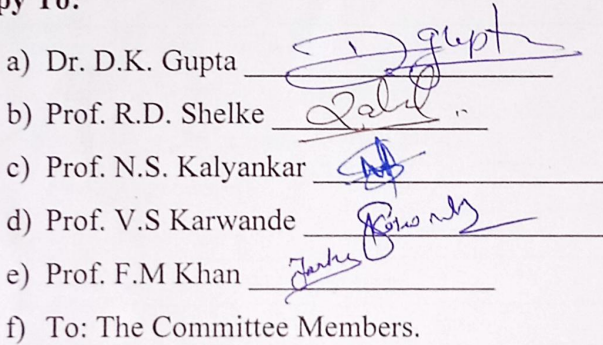 py To:
a) Dr. D.K. Gupta Dgupta
b) Prof. R.D. Shelke
c) Prof. N.S. Kalyankar
d) Prof. V.S Karwande
e) Prof. F.M Khan
f) To: The Committee Members.